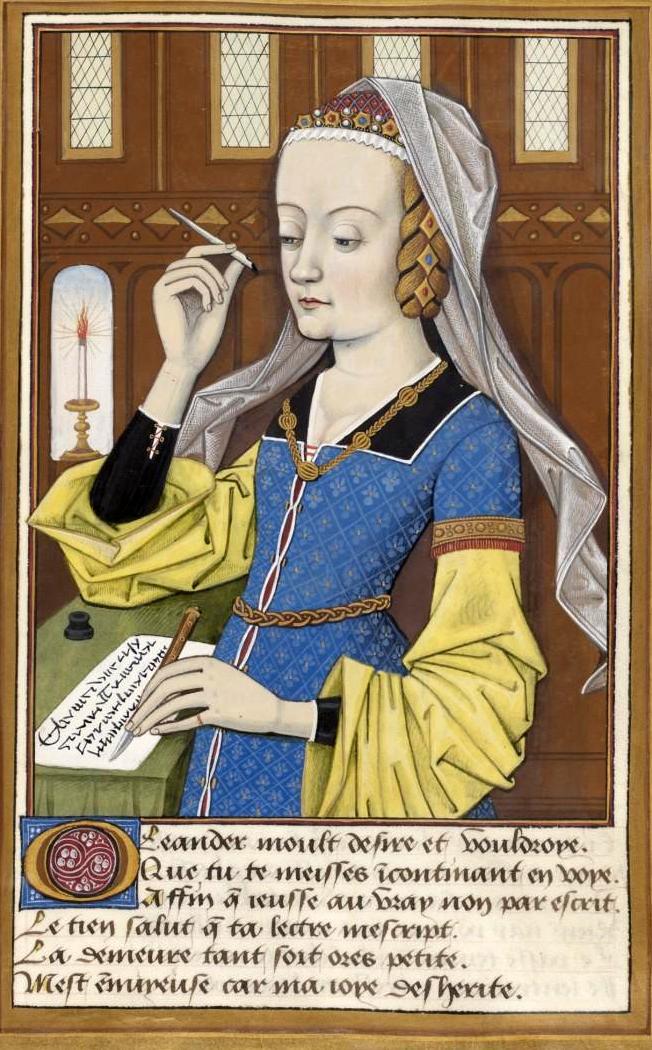 O Leander moult desire et vouldroye.
Que tu te meisses īcontinant en voye.
Affin q̄ ieusse au vray non par escrit.
Le tien salut q̄ ta lectre mescript.
La demeure tant soit ores petite.
Mest ēnuyeuse car ma ioye desherite.